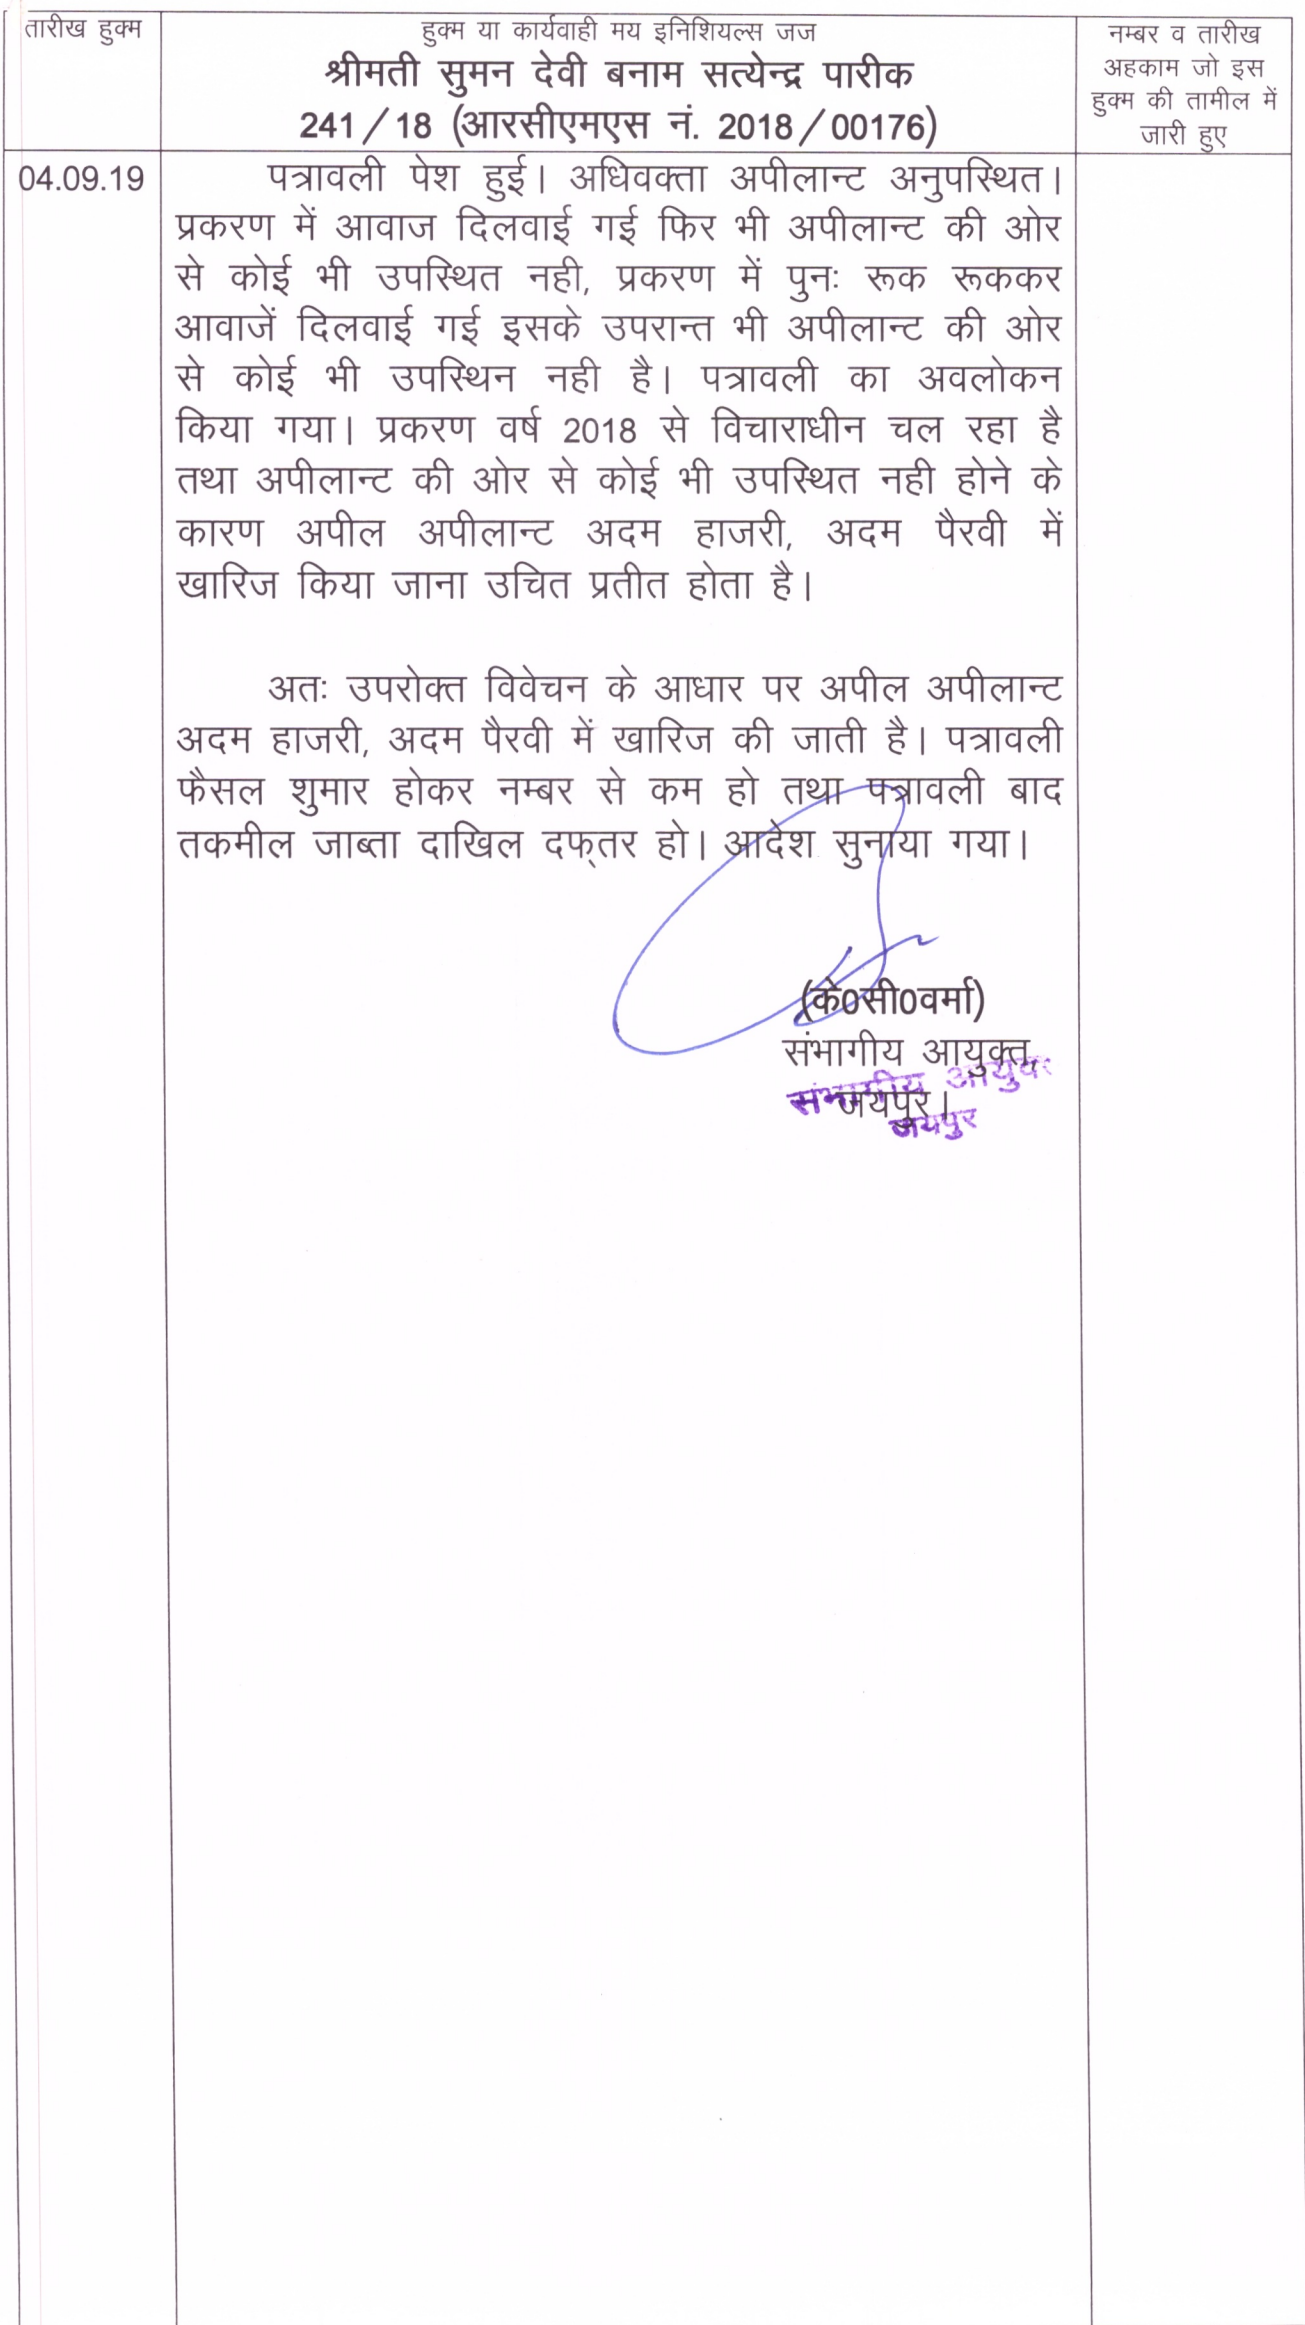 तारीख हुक्म
हुक्म या कार्यवाही मय इनिशियल्स जज
श्रीमती सुमन देवी बनाम सत्येन्द्र पारीक
241/18 (आरसीएमएस नं. 2018/00176)
नम्बर व तारीख
अहकाम जो इस
हुक्म की तामील में
जारी हुए
04.09.19
पत्रावली पेश हुई। अधिवक्ता अपीलान्ट अनुपस्थित।
प्रकरण में आवाज दिलवाई गई फिर भी अपीलान्ट की ओर
से कोई भी उपस्थित नही, प्रकरण में पुनः रूक रूककर
आवाजें दिलवाई गई इसके उपरान्त भी अपीलान्ट की ओर
से कोई भी उपस्थिन नही है। पत्रावली का अवलोकन
किया गया। प्रकरण वर्ष 2018 से विचाराधीन चल रहा है
तथा अपीलान्ट की ओर से कोई भी उपस्थित नही होने के
कारण अपील अपीलान्ट अदम हाजरी, अदम पैरवी में
खारिज किया जाना उचित प्रतीत होता है।
अतः उपरोक्त विवेचन के आधार पर अपील अपीलान्ट
अदम हाजरी, अदम पैरवी में खारिज की जाती है। पत्रावली
फैसल शुमार होकर नम्बर से कम हो तथा पत्रावली बाद
तकमील जाब्ता दाखिल दफ्तर हो। आदेश सुनाया गया।
(के0सी0वर्मा)
संभागीय आयुक्त,
जयपुर।
संभागीय आयुक्त
जयपुर